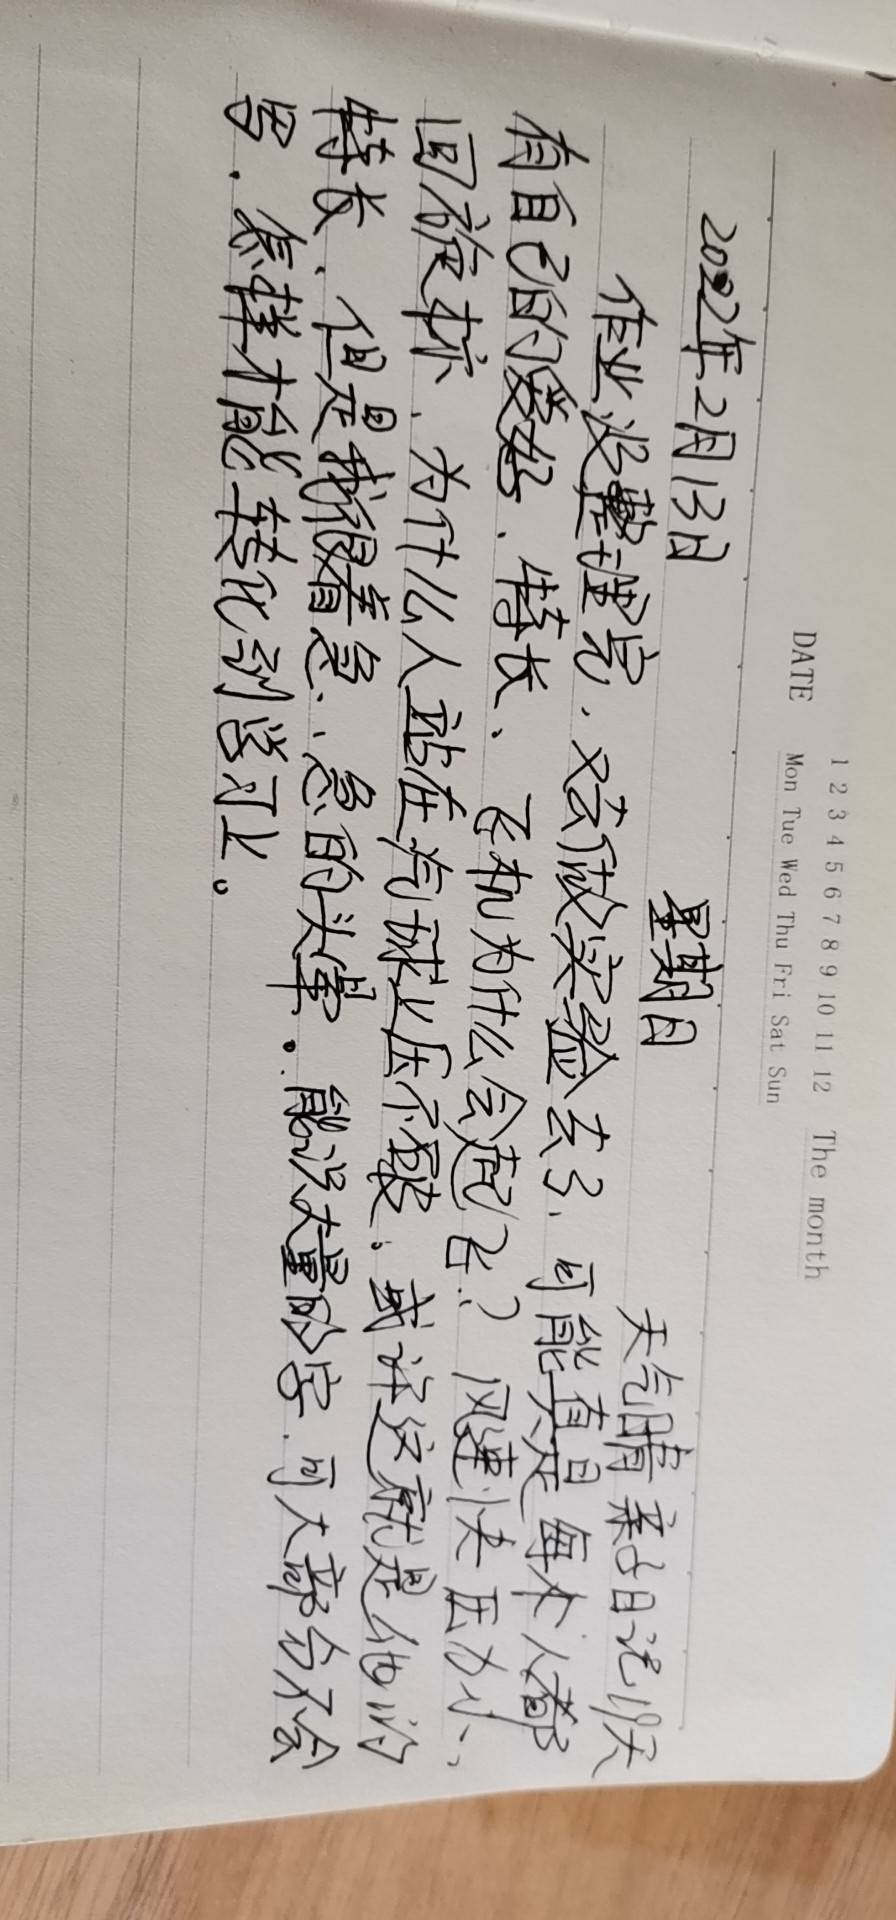 1 2 3 4 5 6 7 8 9 10 11 12 The month
DATE Mon Tue Wed Thu Fri Sat Sun
2022年2月13日 星期日 天气晴 亲子日记19天
作业没整理完，又去做实验去了，可能真是每个人都
有自己的爱好、特长、飞机为什么会起飞？风速快压力小、
回旋标、为什么人站在汽球上压不破，或许这就是他的
特长，但是我很着急，急的头晕。能识大量的字，可大部分不会
写，怎样才能转化到学习上。